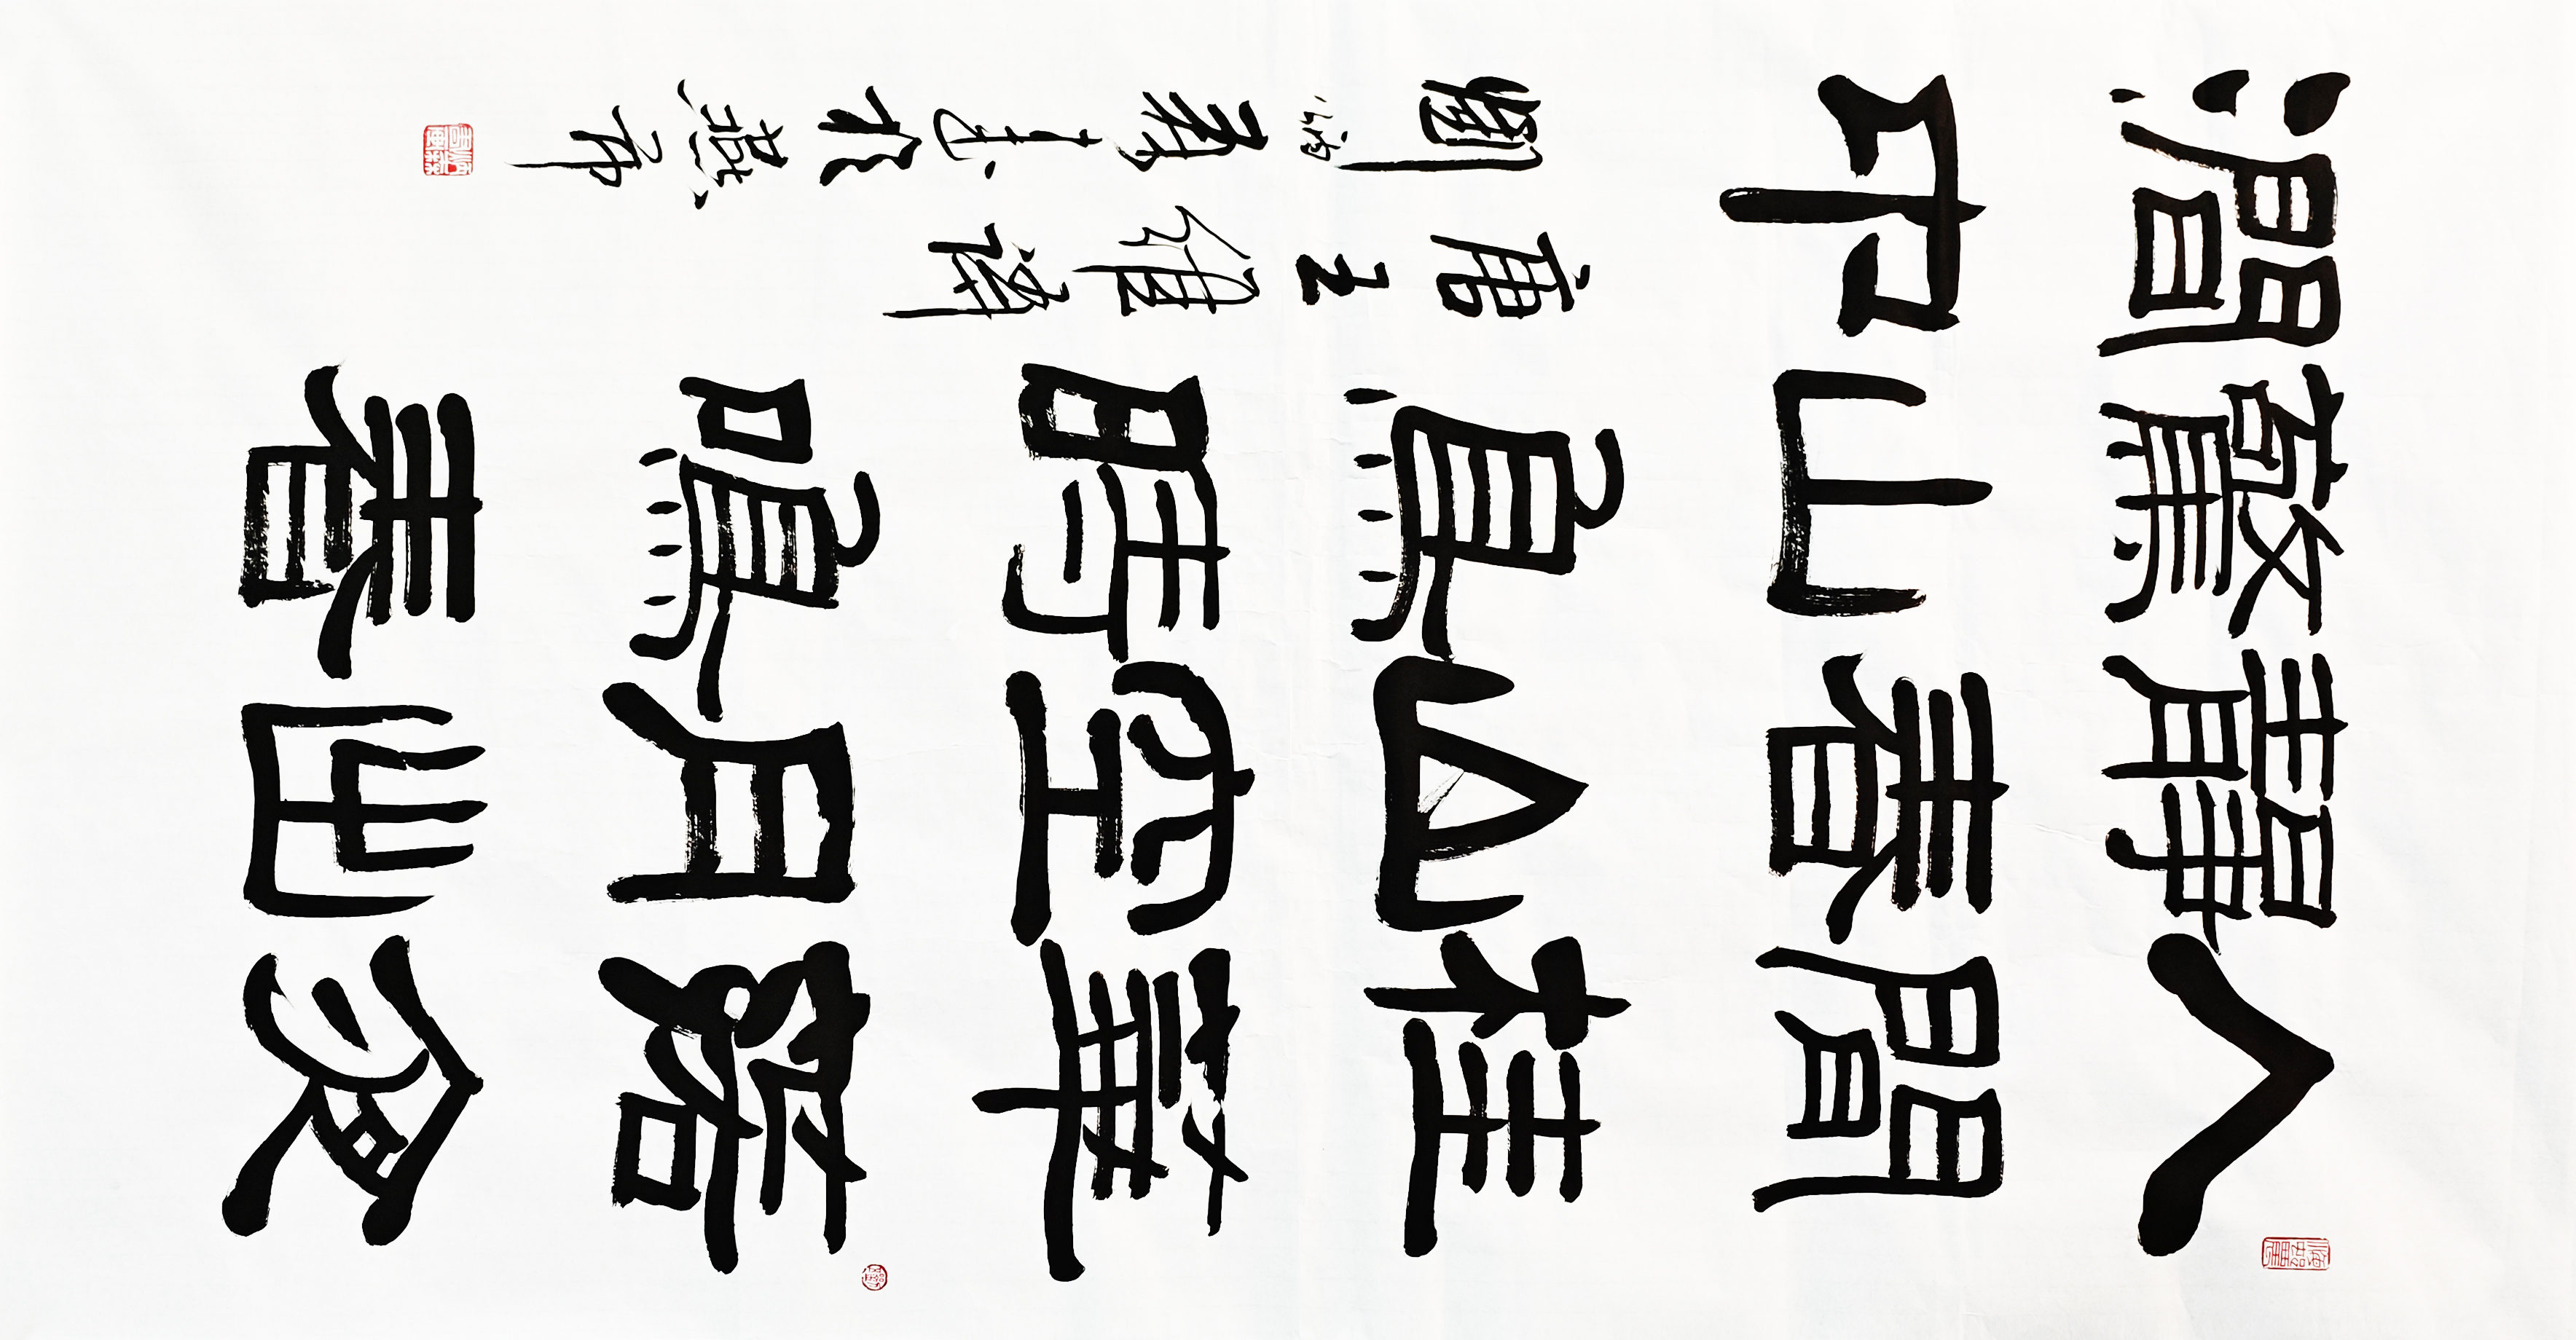 人閒桂華落夜
靜春山空月出
驚山鳥時鳴春
澗中
唐王維詩
劉
於燕市